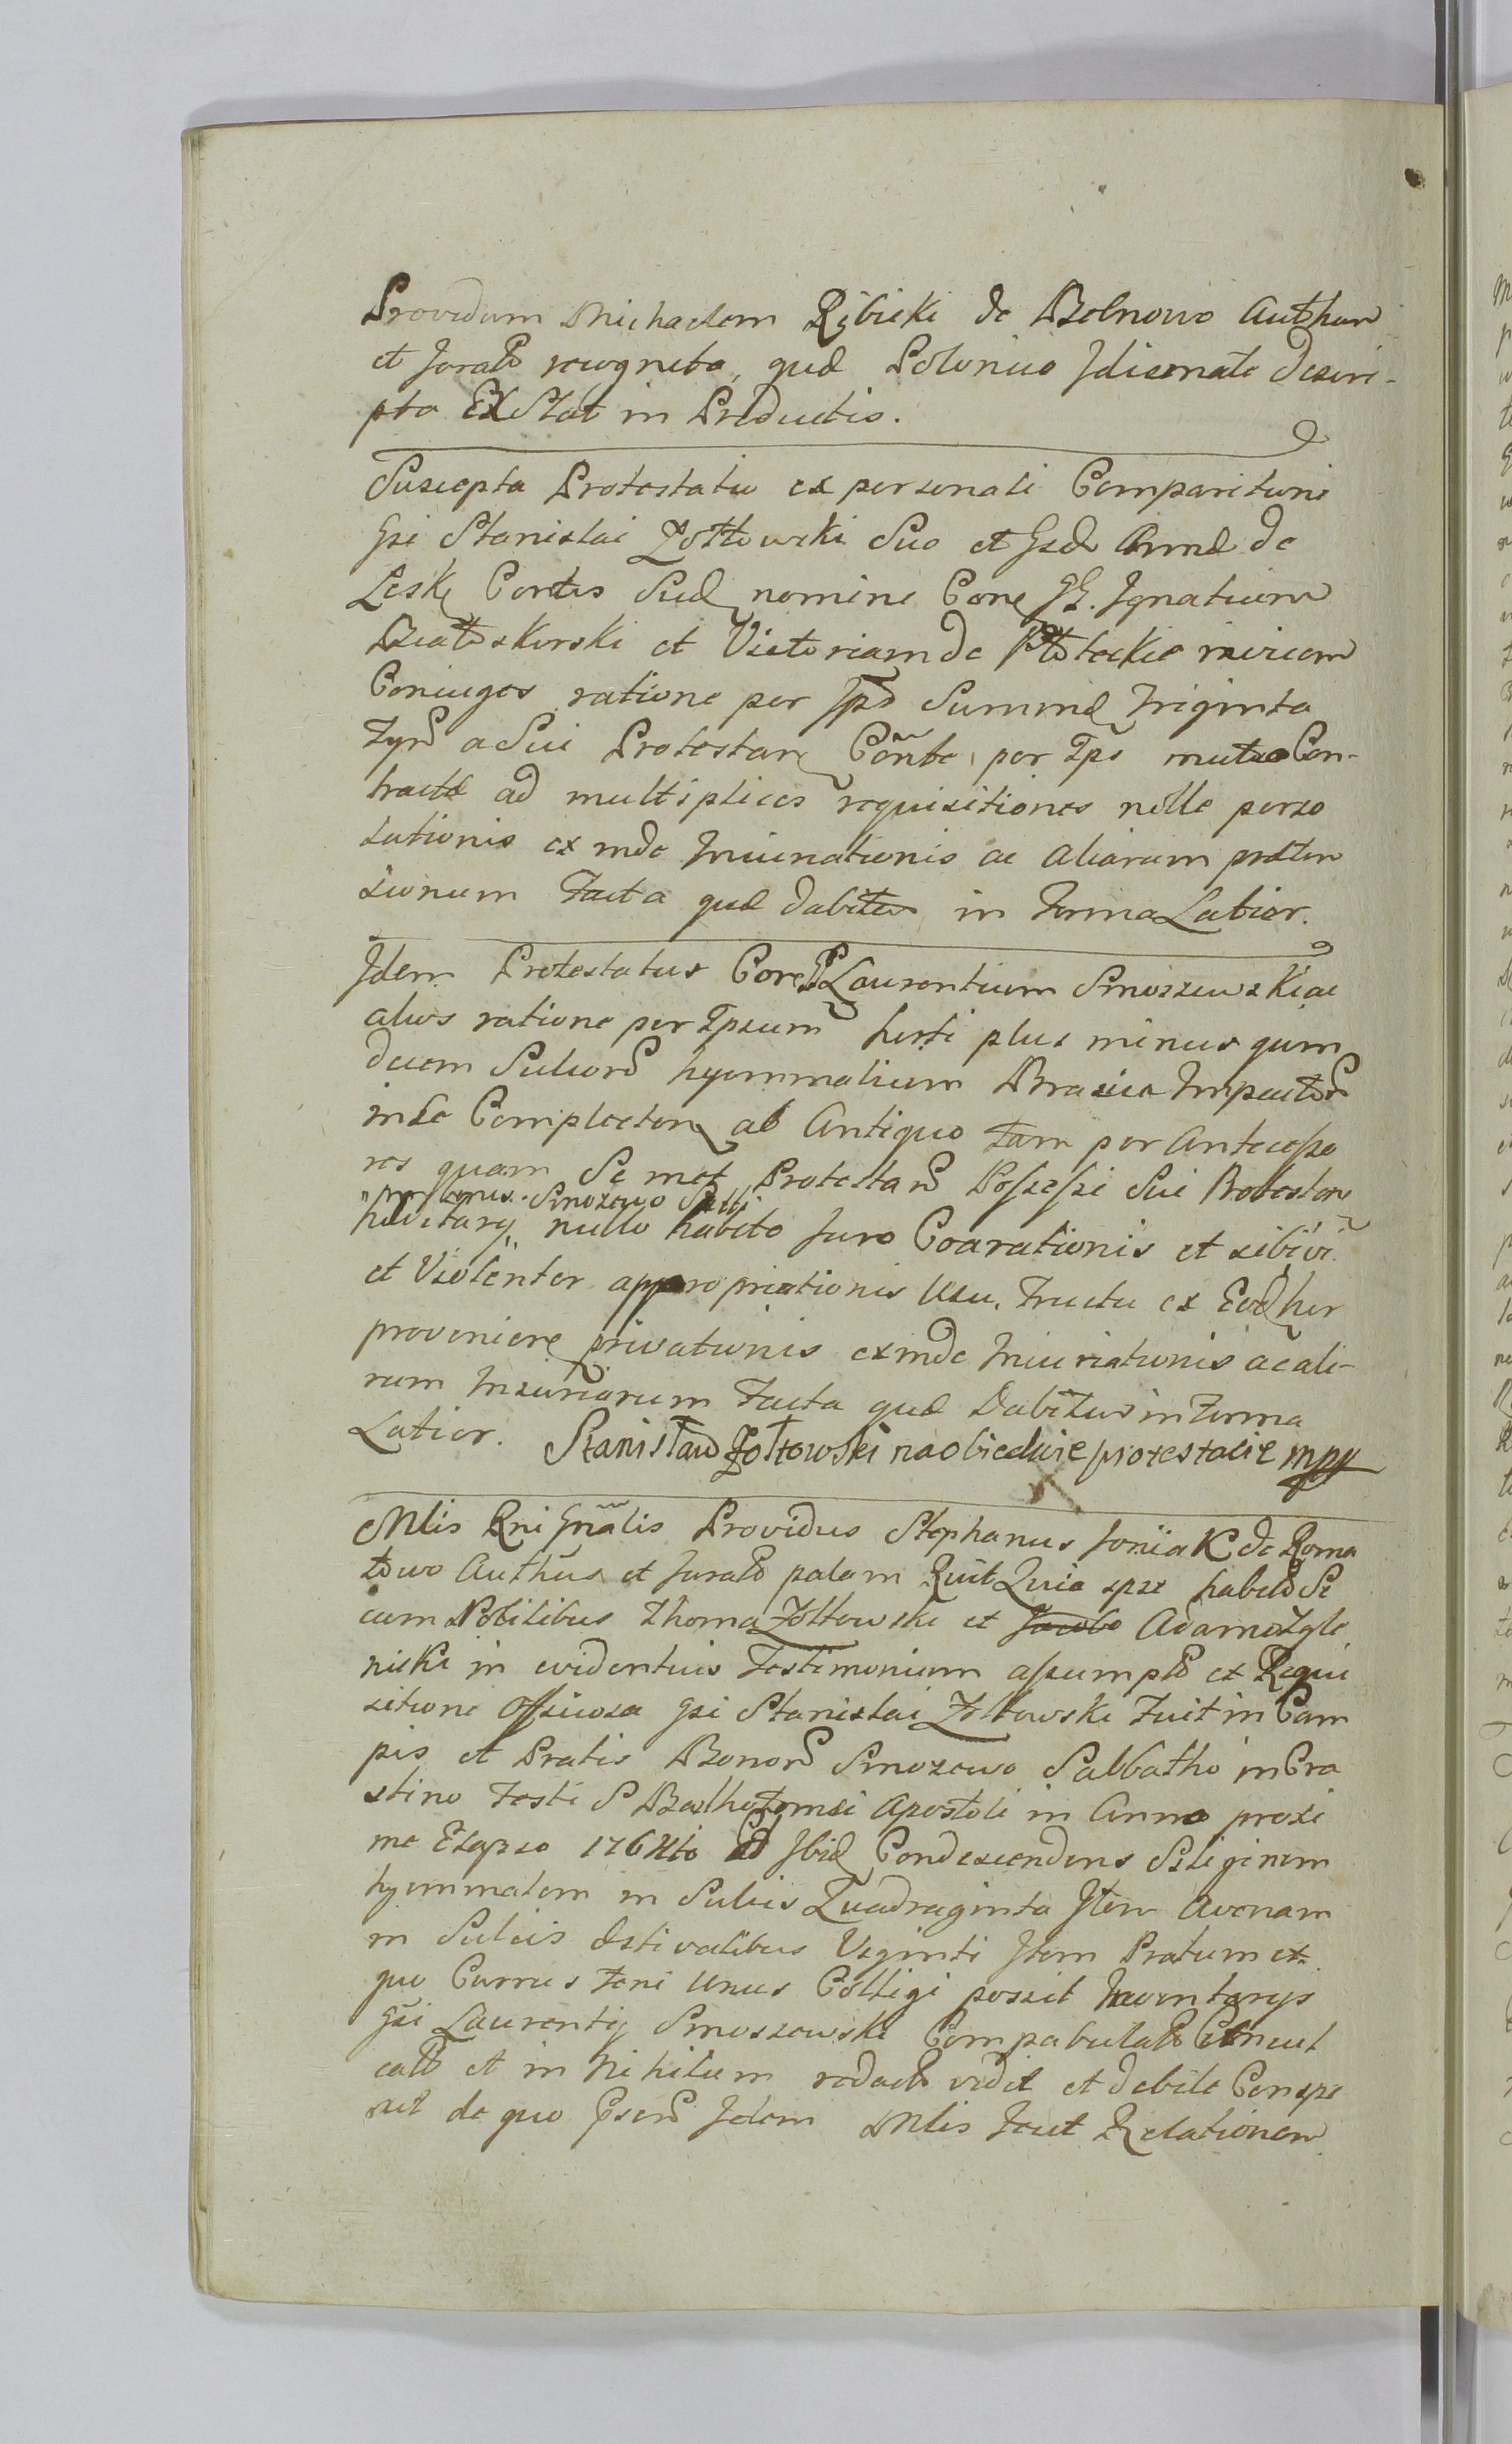 Providum Michaelem Rybicki de Bolnowo Authen
et Jurato recognita, quæ Polonico Idiomate descri-
pta Exstat in Productis.
Suscepta Protestatio ex personali Comparitione
Gsi Stanislai Zołtowski Suo et Gsæ Annæ de
Lesk Contis Suæ nomine Cone GG. Ignatium
Białoskorski et Victoriam de
Coniuges ratione per Ips Summæ Triginta
Tyn a Sui Protestan Conte per Ips mutuo Con-
tractæ ad multiplices requisitiones nolle perso
lutionis ex inde Iniurationis ac aliarum præten
sionum Facta quæ dabitur in Forma Latior.
Idem Protestatus Cone G Laurentium Smoszewski ac
alios ratione per Ipsum horti plus minus quin
decem Sulcorum hyemmalium Brasica Impactor
in se Complecten ab Antiquo tam per Antecesso
res quam Se met Protestan Possessi Sui Protestan
in bonis Smozewo Siti
hæreditary nullo habito Juro Coarationis et sibi vi
et Violenter appropriationis Usu, Fructu ex Eod hor
provenien privationis exinde Iniuriationis ac alia-
rum Iniuriarum Facta quæ Dabitur in Forma
Latior. Stanisław Zołtowski na obiedwie protestacie mpp
Mlis Rni Gnãlis Providus Stephanus Joniak de Roma
towo Authũs et Jurato palam Rvit Quia ipse habito Se
cum Nobilibus Thoma Zołtowski et Jacobo Adamo Zgle
nicki in evidentius Testimonium assumpto ex Requi
sitione Officiosa Gsi Stanislai Zołtowski Fuit in Cam
pis et Pratis Bonor Smozewo Sabbatho in Cra
stino Festi S Bartholomæi Apostoli in Anno proxi
me Elapso Ad Ibid Condescendens Siliginem
hyemmalem in Sulcis Quadraginta Item Avenam
in Sulcis Æstivalibus Viginti Item Pratum ex
quo Currus Feni Unus Colligi possit Inventarys
Gsi Laurentij Smoszewski Compabulato Concul
cato et in Nihilum redacto vidit et debite Conspe
xit de quo Idem Mlis Fecit Relationem